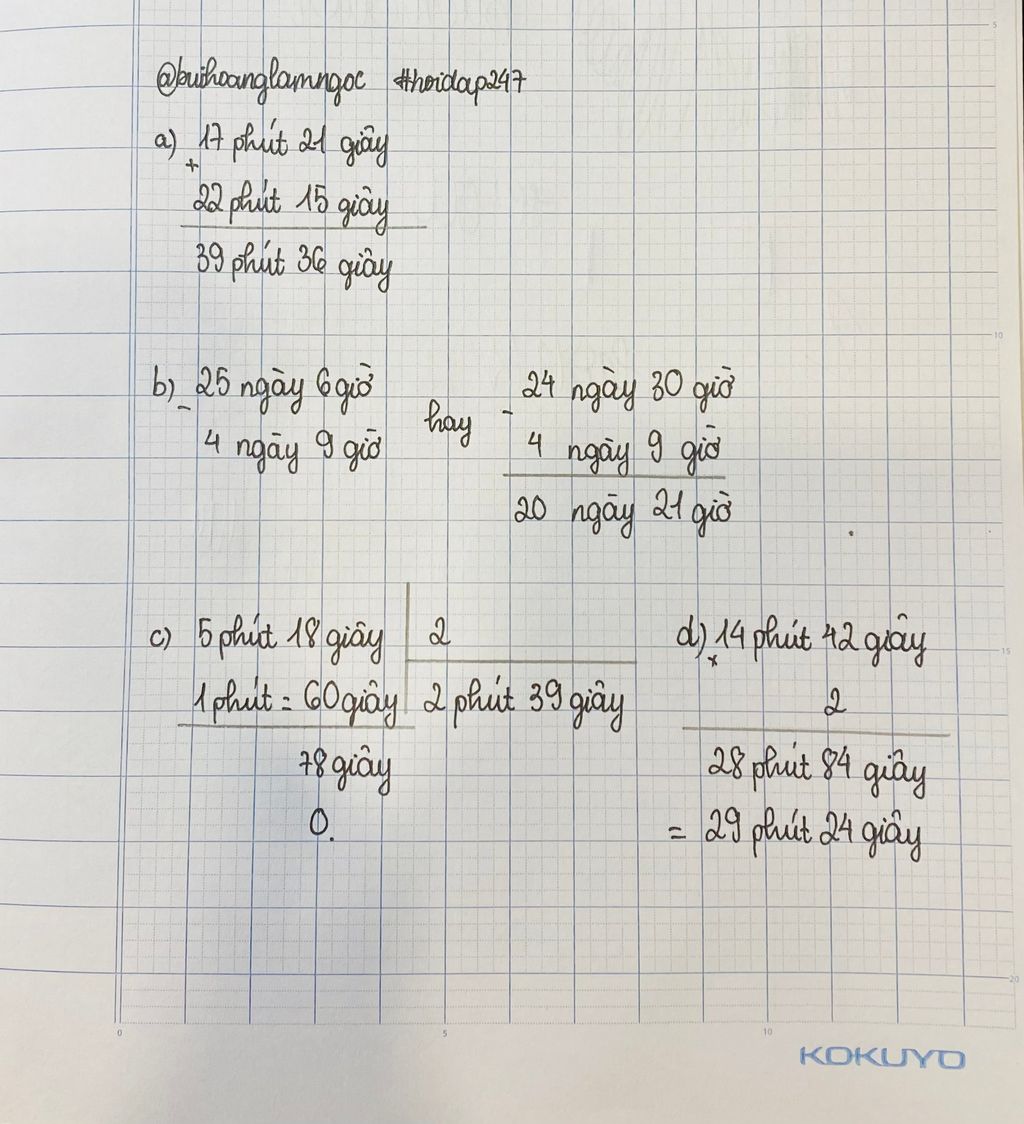 @buihoanglamngoc #hoidap247
a) 17 phút 21 giây
+
22 phút 15 giây
39 phút 36 giây
b) 25 ngày 6 giờ
-
4 ngày 9 giờ
hay
24 ngày 30 giờ
-
4 ngày 9 giờ
20 ngày 21 giờ
c) 5 phút 18 giây 2
1 phút = 60 giây 2 phút 39 giây
78 giây
0.
d) 14 phút 42 giây
x
2
28 phút 84 giây
= 29 phút 24 giây
5
10
15
20
0 5 10
KOKUYO